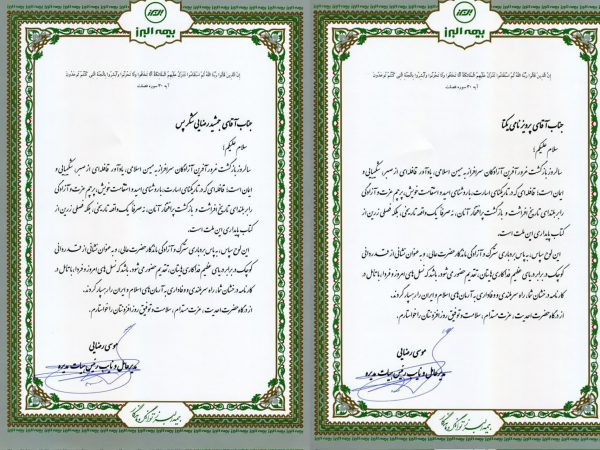 بیمه البرز
إن الذین قالوا ربنا الله ثم استقاموا تتنزل علیهم الملائکة ألا تخافوا ولا تحزنوا وأبشروا بالجنة التی کنتم توعدون
آیه ۳۰ سوره فصلت
جناب آقای پرویز نامی یکتا
سلام علیکم؛
سالروز بازگشت غرورآفرین آزادگان سرافراز به میهن اسلامی، یادآور قافله‌ای از صبر، شکیبایی و
ایمان است؛ قافله‌ای که در تاریکی‌های اسارت، با روشنای امید و استقامت خویش، پرچم عزت و آزادگی
را بر بلندای تاریخ افراشت و بازگشت پرافتخار آنان، نه صرفا یک واقعه تاریخی، بلکه فصلی زرین از
کتاب پایداری این ملت است.
این لوح سپاس، به پاس بردباری سترگ و آزادگی ماندگار حضرت عالی، و به عنوان نشانی از قدردانی
کوچک در برابر دریای عظیم فداکاری‌تان، تقدیم حضور می‌شود. باشد که نسل‌های امروز و فردا، با تامل در
کارنامه درخشان شما، راه سربلندی و وفاداری به آرمان‌های اسلام و ایران را رهسپار گردند.
از درگاه حضرت احدیت، عزت مستدام، سلامت و توفیق روزافزونتان را خواستارم.
موسی رضایی
مدیرعامل و نایب رئیس هیات مدیره
بیمه البرز
إن الذین قالوا ربنا الله ثم استقاموا تتنزل علیهم الملائکة ألا تخافوا ولا تحزنوا وأبشروا بالجنة التی کنتم توعدون
آیه ۳۰ سوره فصلت
جناب آقای جمشید رضایی شکرپس
سلام علیکم؛
سالروز بازگشت غرورآفرین آزادگان سرافراز به میهن اسلامی، یادآور قافله‌ای از صبر، شکیبایی و
ایمان است؛ قافله‌ای که در تاریکی‌های اسارت، با روشنای امید و استقامت خویش، پرچم عزت و آزادگی
را بر بلندای تاریخ افراشت و بازگشت پرافتخار آنان، نه صرفا یک واقعه تاریخی، بلکه فصلی زرین از
کتاب پایداری این ملت است.
این لوح سپاس، به پاس بردباری سترگ و آزادگی ماندگار حضرت عالی، و به عنوان نشانی از قدردانی
کوچک در برابر دریای عظیم فداکاری‌تان، تقدیم حضور می‌شود. باشد که نسل‌های امروز و فردا، با تامل در
کارنامه درخشان شما، راه سربلندی و وفاداری به آرمان‌های اسلام و ایران را رهسپار گردند.
از درگاه حضرت احدیت، عزت مستدام، سلامت و توفیق روزافزونتان را خواستارم.
موسی رضایی
مدیرعامل و نایب رئیس هیات مدیره